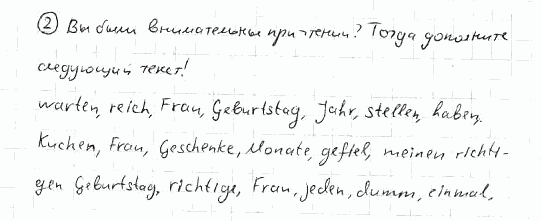 ② Вы были внимательны при чтении? Тогда дополните
следующий текст!
warten, reich, Frau, Geburtstag, Jahr, stellen, haben.
Kuchen, Frau, Geschenke, Monate, gefiel, meinen richti-
gen Geburtstag, richtige, Frau, jeden, dumm, einmal.